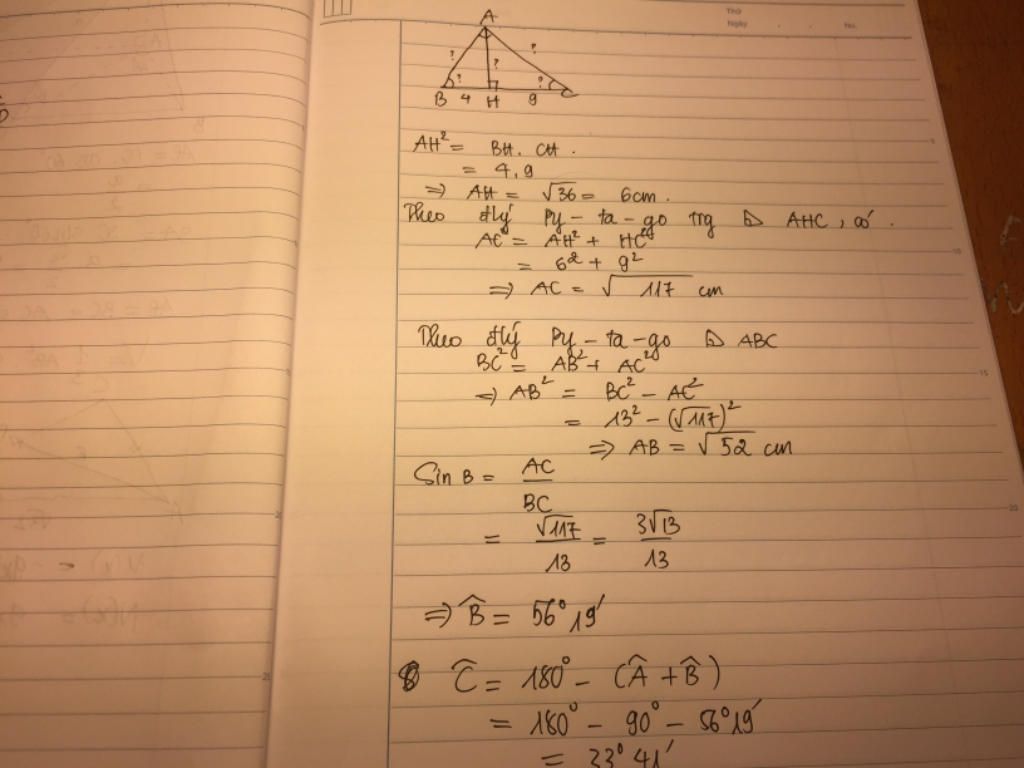 Thứ
Ngày . . No.
A
? ? ?
? ?
B 4 H 9 C
AH² = BH. CH.
= 4,9
⇒ AH = √36 = 6cm.
Theo đlý Py-ta-go trg ⊿ AHC, có.
AC² = AH² + HC²
= 6² + 9²
⇒ AC = √117 cm
Theo đlý Py-ta-go ⊿ ABC
BC² = AB² + AC²
⇒ AB² = BC² - AC²
= 13² - (√117)²
⇒ AB = √52 cm
Sin B = AC
BC
= √117/13 = 3√13/13
⇒ B̂ = 56°19'
Ĉ = 180° - (Â + B̂)
= 180° - 90° - 56°19'
= 33°41'